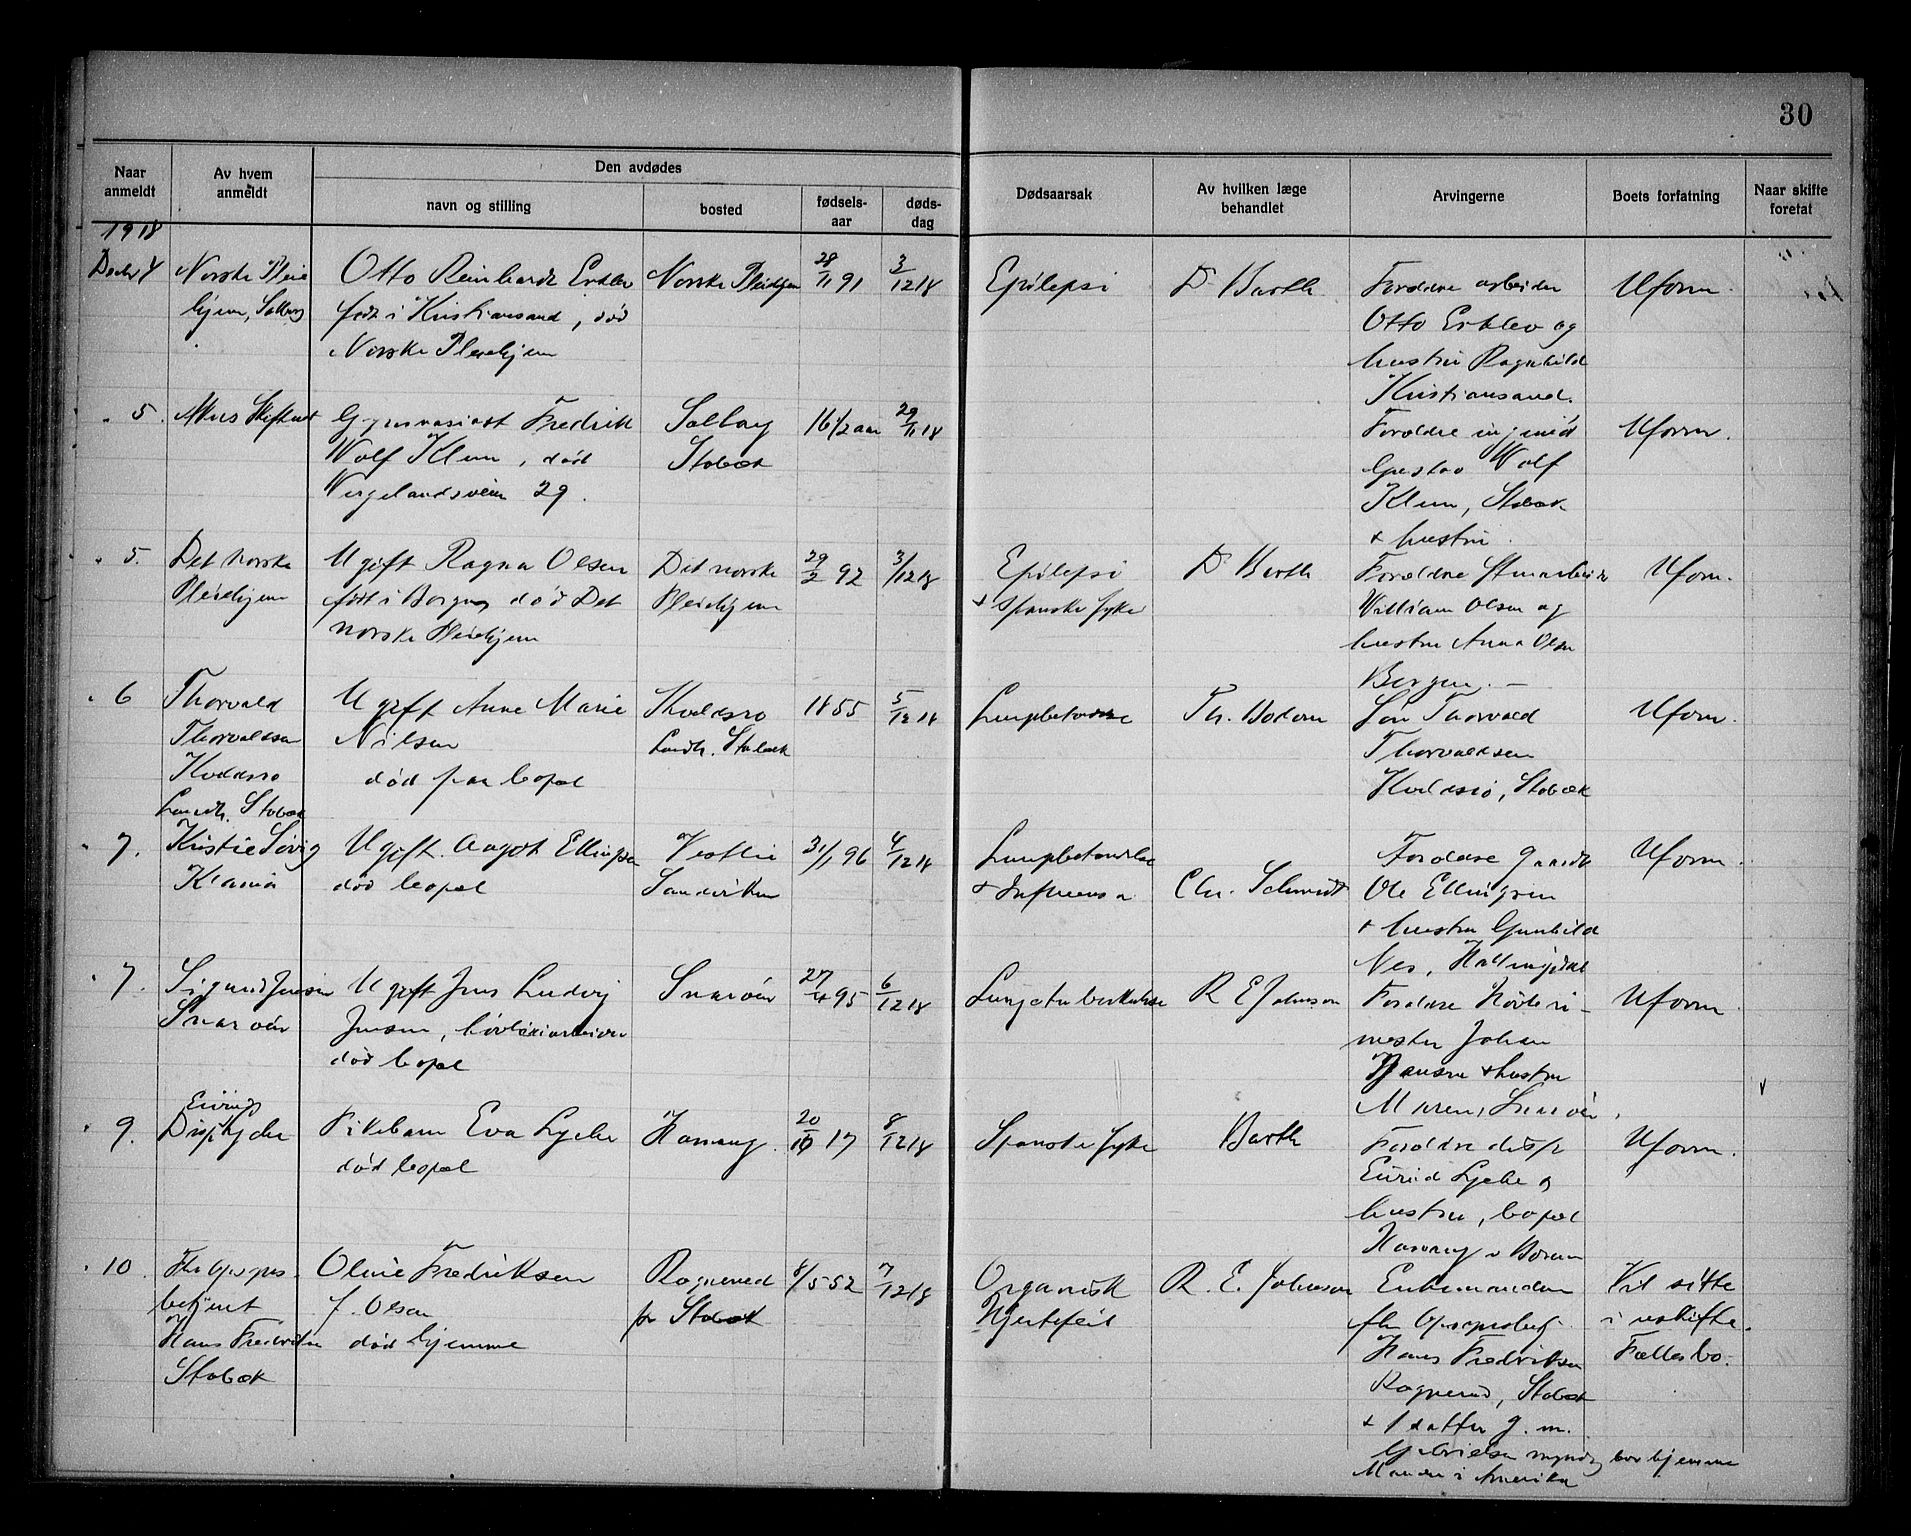 30
Naar anmeldt
Av hvem anmeldt
Den avdødes
navn og stilling
bosted
fødsels-aar
døds-dag
Dødsaarsak
Av hvilken læge behandlet
Arvingerne
Boets forfatning
Naar skifte foretat
1918
Decbr 4 Norske Pleie Otto Reinhardt Norske Pleiehjem 28/11 91 3/12 18 Epilepsi Dr Barth Forældre arbeider Uform.
hjem, Solberg født i Kristiansand, død Otto Erklev og
Norske Pleiehjem hustru Ragnhild
Kristiansand.
" 5 Akers Skifteret Gymnasiast Fredrik Solberg 16 1/2 aar 29/11 18 Forældre Uform.
Wolf Klem, død Stabæk Gustav Wolf
Wergelandsveien 29. Klem, Stabæk
+ hustru.
" 5. Det norske Ugift Ragna Olsen Det norske 29/2 92 3/12 18 Epilepsi Dr Barth Forældre Uform.
Pleiehjem født i Bergen død Det Pleiehjem + Spanske syke William Olsen og
norske Pleiehjem hustru Anna Olsen
Bergen. –
" 6 Thorvald Ugift Anne Marie 1855 5/12 18 Lungebetændelse Th. Bodom Søn Thorvald Uform.
Thorvaldsen Nilsen Landh. Stabæk Thorvaldsen
død paa bopæl Stabæk
Landh. Stabæk
" 7. Ugift Aagot Ellingsen Vestlie 31/1 96 4/12 18 Lungebetændelse Forældre gaardbr Uform.
Kr.ania død bopæl Sandviken + Influensa Chr. Schmidt Ole Ellingsen
+ hustru Gunhild
Nes, Hallingdal
" 7. Sigurd Jensen Ugift Jens Ludvig Snarøen 27/4 95 6/12 18 Lungetuberkulose R E Johnson Forældre Høvleri- Uform.
Snarøen Jensen, høvleriarbeider mester Johan
død bopæl Jensen + hustru
Maren, Snarøen.
Eivind
" 9. Disp. Lycke Pikebarn Eva Lycke 20/10 17 8/12 18 Spanske syke Barth Forældre disp Uform.
død bopæl Eivind Lycke og
hustru, bopæl
" 10. Fhv Gruspros. Oline Fredriksen Ragnerud 8/5 52 7/12 18 Organisk R. E. Johnson Enkemanden Vil sitte
betjent f. Olsen pr Stabæk Hjertefeil fhv i uskifte.
Hans Fredriksen død hjemme Hans Fredriksen Fællesbo.
Stabæk Ragnerud, Stabæk
+ 1 datter g. m.
Gabrielsen myndig bor hjemme
Manden i Amerika